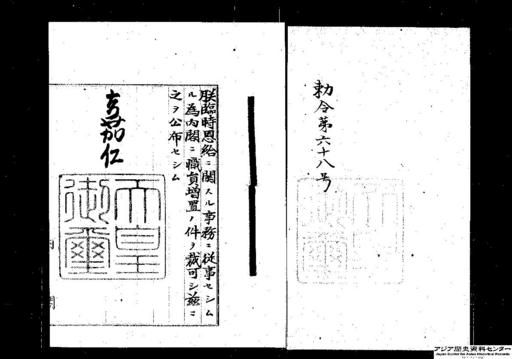 勅令第六十八号
朕臨時恩給ニ関スル事務ニ従事セシム
ル為内閣ニ職員増置ノ件ヲ裁可シ茲ニ
之ヲ公布セシム
嘉仁
天皇
御璽
内閣
アジア歴史資料センター
Japan Center for Asian Historical Records